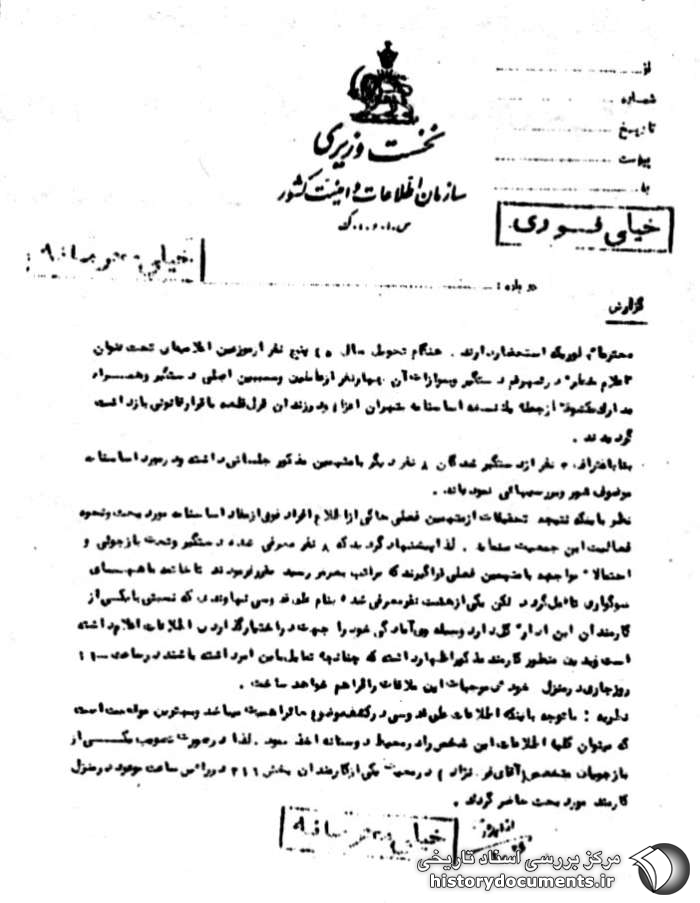 از
شماره
تاریخ
پیوست
به
نخست وزیری
سازمان اطلاعات و امنیت کشور
س.ا.و.ا.ک
خیلی فوری
خیلی محرمانه
درباره :
گزارش
محترماً بطوریکه استحضار دارند . هنگام تحویل سال ۴۵ پنج نفر از موزعین اعلامیه‌ای تحت عنوان
در شهر قم دستگیر و بموازات آن چهار نفر از عاملین و مسببین اصلی دستگیر و همراه
مدارک مکشوفه از جمله یک نسخه اساسنامه متهمان اعزام و در زندان قزل قلعه با قرار قانونی بازداشت
گردیدند .
بنا باعتراف نفر از دستگیر شدگان ۸ نفر دیگر با متهمین مذکور جلساتی داشته و در مورد اساسنامه
موصوف شور و بررسیهائی نموده‌اند .
نظر باینکه نتیجه تحقیقات از متهمین فعلی حاکی از اطلاع افراد فوق از مفاد اساسنامه مورد بحث و نحوه
فعالیت این جمعیت میباشد . لذا پیشنهاد گردید که ۸ نفر معرفی شده دستگیر و تحت بازجوئی و
احتمالاً مواجهه با متهمین فعلی قرار گیرند که مراتب بعرض رسید مقرر فرمودند تا خاتمه ماههای
سوگواری تأمل گردد لکن یکی از هشت نفر معرفی شده بنام علی قدوسی نهاوندی که نسبتی با یکی از
کارمندان این اداره کل دارد وسیله وی آمادگی خود را جهت در اختیار گذاردن اطلاعات اعلام داشته
است و بدین منظور کارمند مذکور اظهار داشته که چنانچه تمایل باین امر داشته باشند در ساعت
روز جاری در منزل خود موجبات این ملاقات را فراهم خواهد ساخت .
نظریه : با توجه باینکه اطلاعات علی قدوسی در کشف موضوع حائز اهمیت میباشد و بهترین موقعیت است
که میتوان کلیه اطلاعات این شخص را در محیط دوستانه اخذ نمود . لذا در صورت تصویب یکی از
بازجویان متخصص ( آقای نژاد ) در معیت یکی از کارمندان بخش ۳۱۱ در رأس ساعت موعود در منزل
کارمند مورد بحث حاضر گردند .
خیلی محرمانه
مرکز بررسی اسناد تاریخی
historydocuments.ir